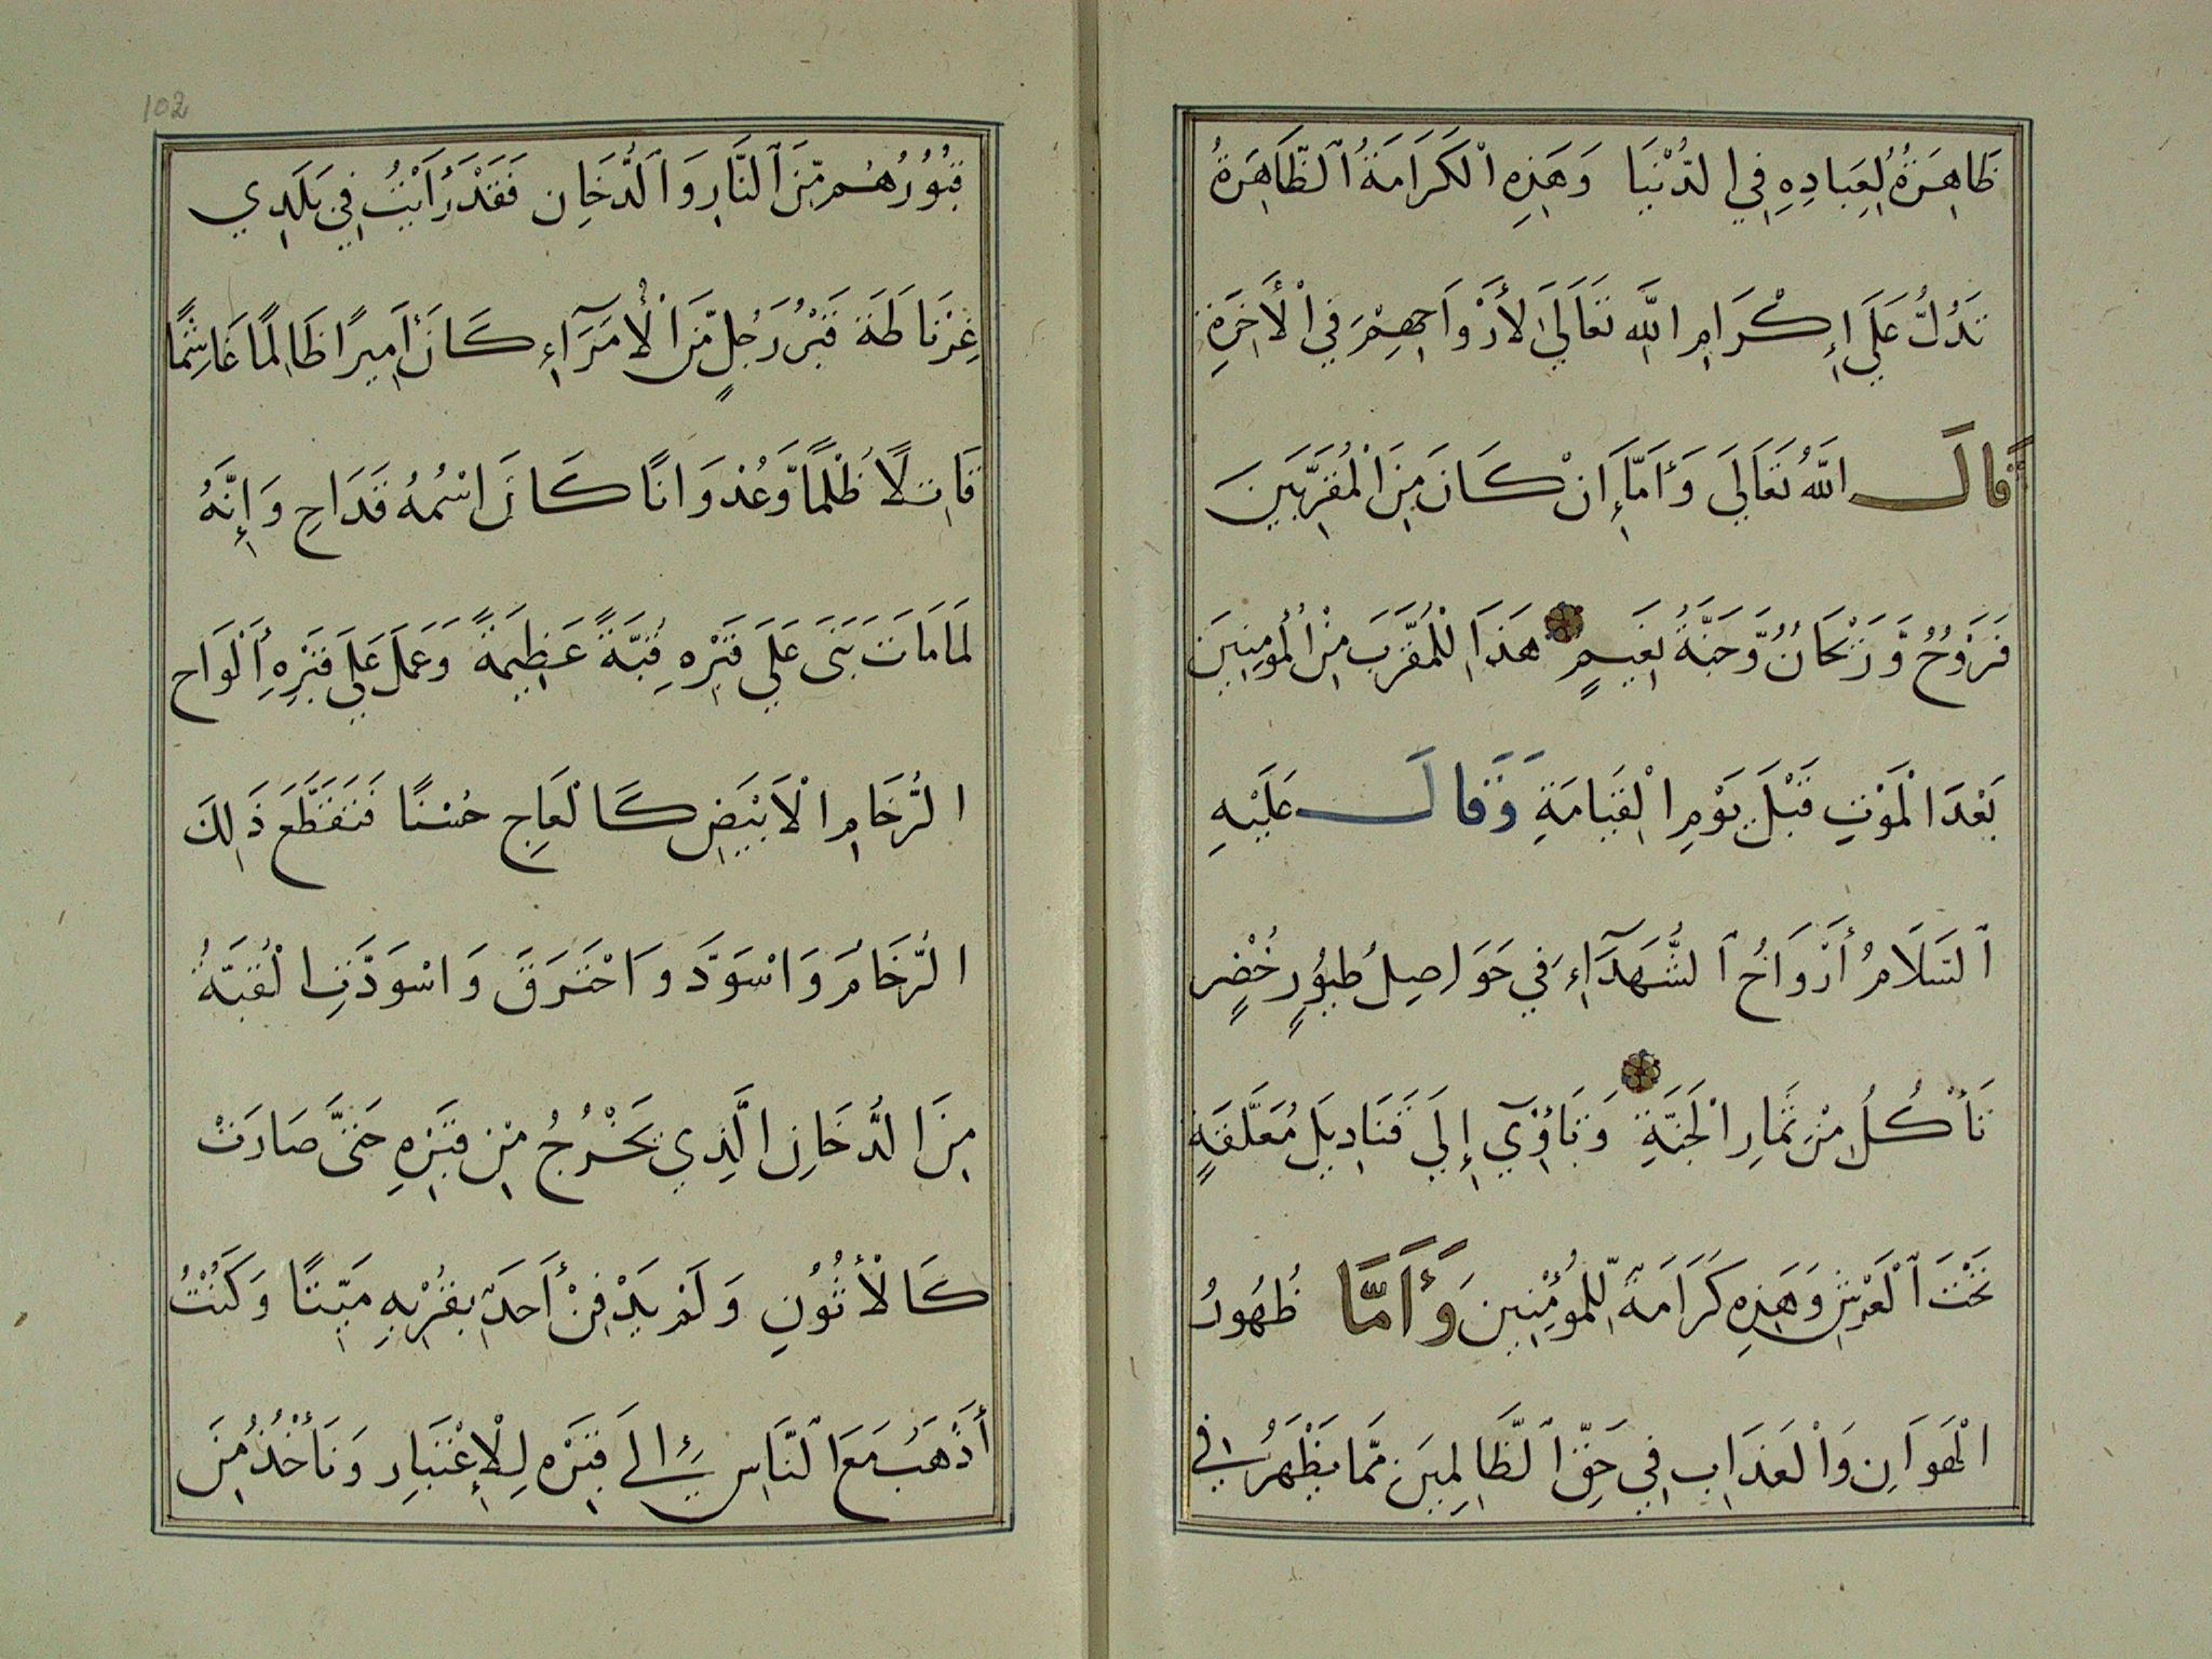 ظَاهِرَةُ لِعِبادِهِ فِي الدُّنْيَا وَهَذِهِ الْكَرَامَةُ ٱلظَّاهِرَةُ
تَدُلُّ عَلَى إِكْرَامِ اللَّهِ تَعَالَى لأَرْوَاحِهِمْ فِي الْأَخِرَةِ
قَالَ اللَّهُ تَعَالَى وَأَمَّا إِنْ كَانَ مِنَ الْمُقَرَّبِينَ
فَرَوْحُ وَّرَيْحَانُ وَّجَنَّةُ نَعِيمٍ هَذَا لِلْمُقَرَّبِ مِنْ الْمُومِنِينَ
بَعْدَ الْمَوْتِ قَبْلَ يَوْمِ الْقِيَامَةِ وَقَالَ عَلَيْهِ
ٱلسَّلَامُ أَرْوَاحُ ٱلشُّهَدَآءِ فِي حَوَاصِلِ طُيُورٍ خُضْرٍ
تَأْكُلُ مِنْ ثَمَارِ الْجَنَّةِ وَتَاوِٓي إِلَى قَنَادِيلَ مُعَلَّقَةٍ
تَحْتَ ٱلْعَرْشِ وَهَذِهِ كَرَامَةٌ لِّلْمُؤْمِنِينَ وَأَمَّا ظُهُورُ
الْهَوَانِ وَالْعَذَابِ فِي حَقِّ ٱلظَّالِمِينَ مِمَّا يَظْهَرُ فِي
102
قُبُورُهُم مِّنَ ٱلنَّارِ وَٱلدُّخَانِ فَقَدْ رَأَيْتُ فِي بَلَدِي
غِرْنَاطَةَ قَبْرُ رَجُلٍ مِّنَ الْأُمَرَآءِ كَانَ أَمِيرًا ظَالِمًا غَاشِمًا
قَاتِلًا ظُلْمًا وَّعُدْوَانًا كَانَ اسْمُهُ قَدَاحِ وَإِنَّهُ
لَمَا مَاتَ بَنَى عَلَى قَبْرِهِ قُبَّةً عَظِيمَةً وَعَمَلَ عَلَى قَبْرِهِ أَلْوَاح
الرُّخَامِ الْاَبْيَضِ كَالْعَاجِ حُسْنًا فَتَقَطَّعَ ذَلِكَ
الرُّخَامُ وَاسْوَدَّ وَاحْتَرَقَ وَاسْوَدَّتِ الْقُبَّةُ
مِنَ الدُّخَانِ الَّذِي يَخْرُجُ مِنْ قَبْرِهِ حَتَّى صَارَتْ
كَالْأُتُونِ وَلَمْ يَدْفِنْ أَحَدٌ بِقُرْبِهِ مَيِّتًا وَكُنْتُ
أَذْهَبُ مَعَ ٱلنَّاسِ إِلَى قَبْرِهِ لِلْإِعْتِبَارِ وَنَأْخُذُ مِنَ